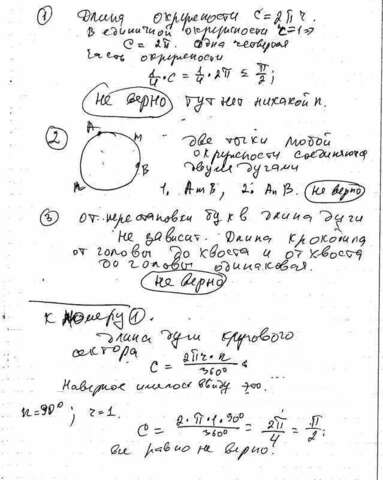 ① Длина окружности C = 2πr.
В единичной окружности r=1 ⇒
C = 2π. Одна четверая
часть окружности
1/4 · C = 1/4 · 2π = π/2;
Не верно Тут нет никакой n.
② A m B n
две точки любой
окружности соединяются
двумя дугами
1. AmB, 2. AnB. Не верно
③ от перестановки букв длина дуги
не зависит. Длина крокодила
от головы до хвоста и от хвоста
до головы одинаковая.
Не верно
К номеру ①.
Длина дуги кругового
сектора
C = 2πr·n/360°
Наверное имелось ввиду это.
n=90°; r=1.
C = 2·π·1·90°/360° = 2π/4 = π/2;
все равно не верно!